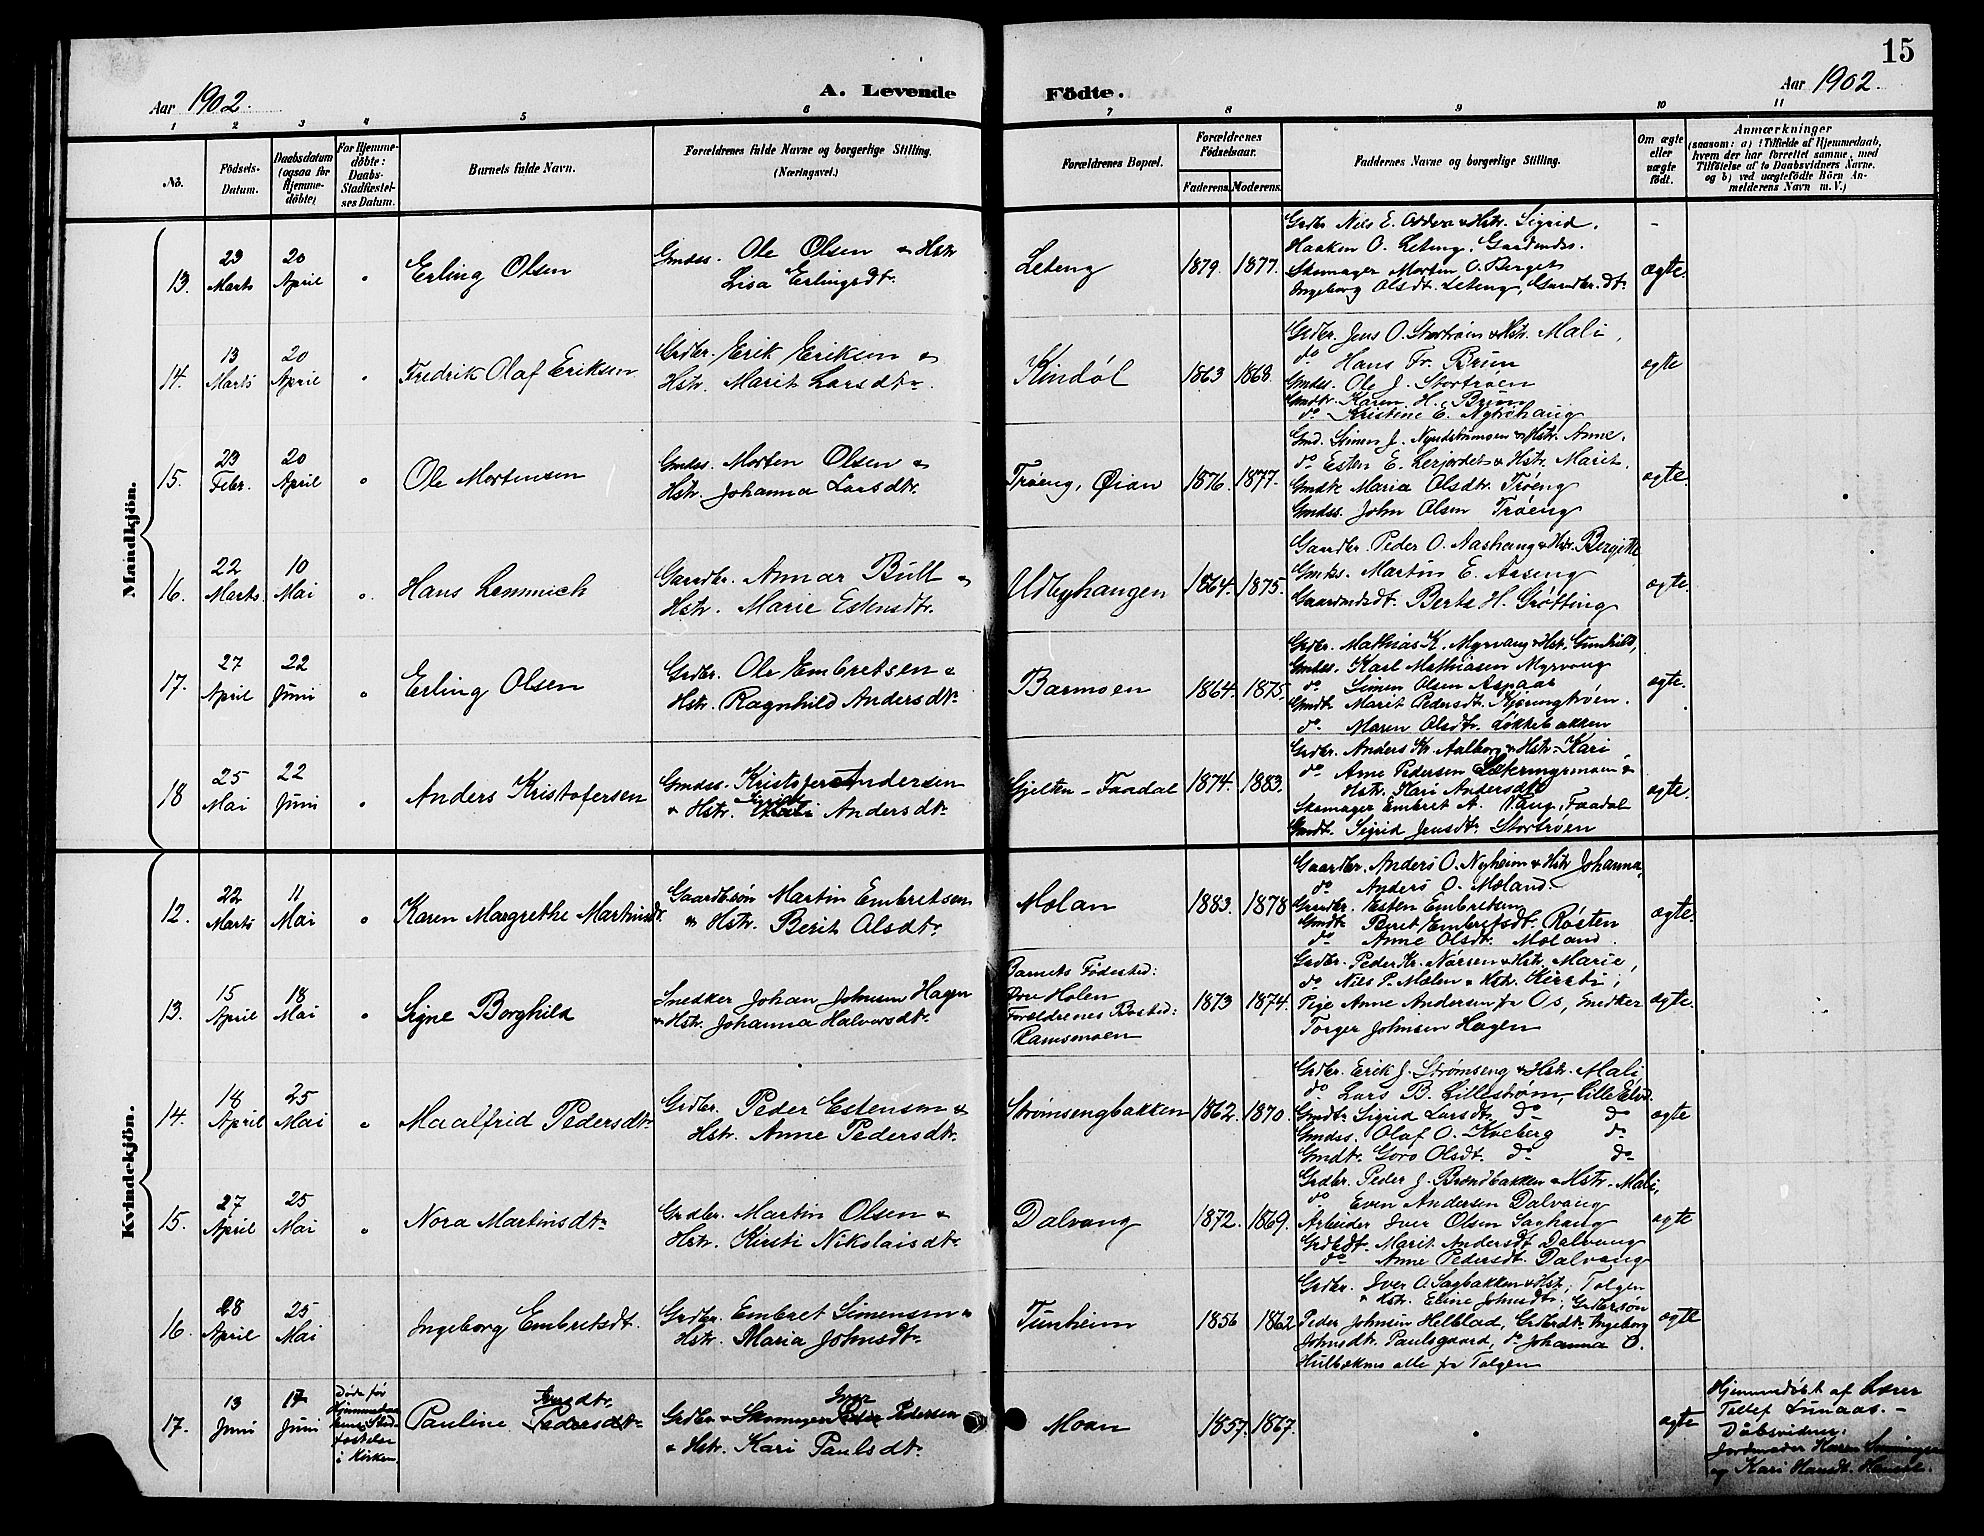 15
Aar 1902.
A. Levende Födte.
Aar 1902.
1 2 3 4 5 6 7 8 9 10 11
No.
Födsels-Datum.
Daabsdatum (ogsaa for Hjemmedöbte)
For Hjemmedöbte: Daabs-Stadfæstelses Datum.
Barnets fulde Navn.
Forældrenes fulde Navne og borgerlige Stilling. (Næringsvei.)
Forældrenes Bopæl.
Forældrenes Födselsaar.
Faderens. Moderens.
Faddernes Navne og borgerlige Stilling.
Om ægte eller uægte födt.
Anmærkninger
(saasom: a) i Tilfælde af Hjemmedaab, hvem der har forrettet samme, med Tilföielse af to Daabsvidners Navne, og b) ved uægtefödte Börn Anmelderens Navn m. V.)
Mandkjön.
13. 23 Marts 20 April " Erling Olsen
Gmdss. Ole Olsen & Hstr
Lisa Erlingsdtr.
Leteng 1879. 1877.
Grdbr Nils E. & Hstr. Sigrid.
Haaken O. Leteng, Gaardmds.
Skomager Morten O. Berget
Ingeborg Olsdt. Leteng, Gaardbr.dtr
ægte.
14. 13 Marts 20 April " Fredrik Olaf Eriksen
Grdbr. Erik Eriksen &
Hstr. Marit Larsdtr.
Kindøl 1863 1868
Grdbr. Jens O. Stortrøen & Hstr. Mali,
do Hans Fr. Brun
Gmdss. Ole J. Stortrøen
Gmdtr. Karen H. Brun
do Kristine E. Nytrøhaug
ægte
15. 23 Febr. 20 April " Ole Mortensen
Gmdss. Morten Olsen &
Hstr. Johanna Larsdtr.
Trøeng, Øian 1876. 1877.
Gmd. Simen J. & Hstr. Anne.
do Esten E. Lerjordet & Hstr. Marit.
Gmdtr Maria Olsdtr. Trøeng
Gmdss. John Olsen Trøeng
ægte.
16. 22 Marts. 10 Mai " Hans Lemmich
Gaardbr. Annar Bull &
Hstr. Marie Estensdtr.
Udbyhaugen 1864. 1875.
Gaardbr. Peder O. Aashaug & Hstr. Bergitte
Gmdss. Martin E. Aaseng
Gaardmdsdt. Berta H. Grøtting
ægte.
17. 27 April 22 Juni " Erling Olsen
Grdbr. Ole Embretsen &
Hstr. Ragnhild Andersdtr.
Barmoen 1864. 1875.
Grdbr. Mathias K. Myrvang & Hstr. Gunhild,
Gmdss. Karl Mathiasen Myrvang
do Simen Olsen Aspaas
Gmdt. Marit Pedersdt. Kjæringtrøen.
do Maren Olsdtr. Løkkebakken
ægte.
18 25 Mai 22 Juni " Anders Kristofersen
Gmdss. Kristofer Andersen
& Hstr. Andersdtr.
Gjelten - Faadal 1874. 1883.
Grdbr. Anders Kr. Aalborg & Hstr. Kari
do Arne Pedersen &
Hstr. Kari Andersdtr
Skomager Embret A. Vang, Faadal
Gmdt. Sigrid Jensdtr. Stortrøen
ægte.
Kvindekjön.
12. 22 Marts 11 Mai " Karen Margrethe Martinsdt.
Gaardbrsøn Martin Embretsen
& Hstr. Berit Olsdtr.
Molan 1883. 1878
Gaardbr. Anders O. Nyheim & Hstr Johanna,
do Anders O. Moland.
Gaardbr. Esten Embretsen
Gmdtr Beret Embretsdt. Røsten
do Anne Olsdt. Moland.
ægte.
13. 15 April 18 Mai " Signe Borghild
Snedker Johan Johnsen Hagen
& Hstr. Johanna Halvorsdtr.
Barnets Fødested:
Øvre Holen
Forældrenes Bosted:
Ramsmoen
1873 1874.
Grdbr. Peder Kr. Nørsen & Hstr. Marie,
do Nils P. Molen & Hstr. Kirsti;
Pige Anne Andersen fr Os, Snedker
Torger Johnsen Hagen
ægte.
14. 18 April 25 Mai " Maalfrid Pedersdtr.
Grdbr. Peder Estensen &
Hstr. Anne Pedersdtr.
Strømsengbakken 1862. 1870.
Grdbr. Erik J. Strømseng & Hstr. Mali
do Lars B. Lillestrøm, Lille Elvd.
Gmdtr Sigrid Larsdtr do do
Gmdss. Olaf O. Kveberg do
Gmdt. Goro Olsdt. do do
ægte
15. 27 April 25 Mai " Nora Martinsdtr.
Grdbr. Martin Olsen &
Hstr. Kirsti Nikolaisdtr.
Dalvang 1872. 1869.
Grdbr. Peder J. Brændbakken & Hstr. Mali,
do Even Andersen Dalvang
Arbeider Iver Olsen Saghaug
Grdbdt. Marit Andersdt Dalvang
do Anne Pedersdt. Dalvang
ægte
16. 28 April 25 Mai Ingeborg Embretsdt.
Grdbr. Embret Simensen &
Hstr. Maria Johnsdtr.
Tunheim 1856 1862
Grdbr. Iver O. Sagbakken & Hst; Tolgen
& Hstr. Eline Johnsdtr; Grdbrsøn
Peder Johnsen Helblad, Grdbrdtr. Ingeborg
Johnsdtr. Paulsgaard, do Johanna O.
alle fr Tolgen
ægte
17. 13 Juni 17 Juni
Døde før
i Kirken
Iversdtr.
Pauline Pedersdtr.
Iver
Grdbr. & Skomager Peder Pedersen
& Hstr. Kari Paulsdtr.
Moan 1857. 1867.
"
ægte
Hjemmedøbt af Lærer
Tellef Lunaas. -
Daabsvidner:
Jordmoder Karen
og Kari Hansdt.